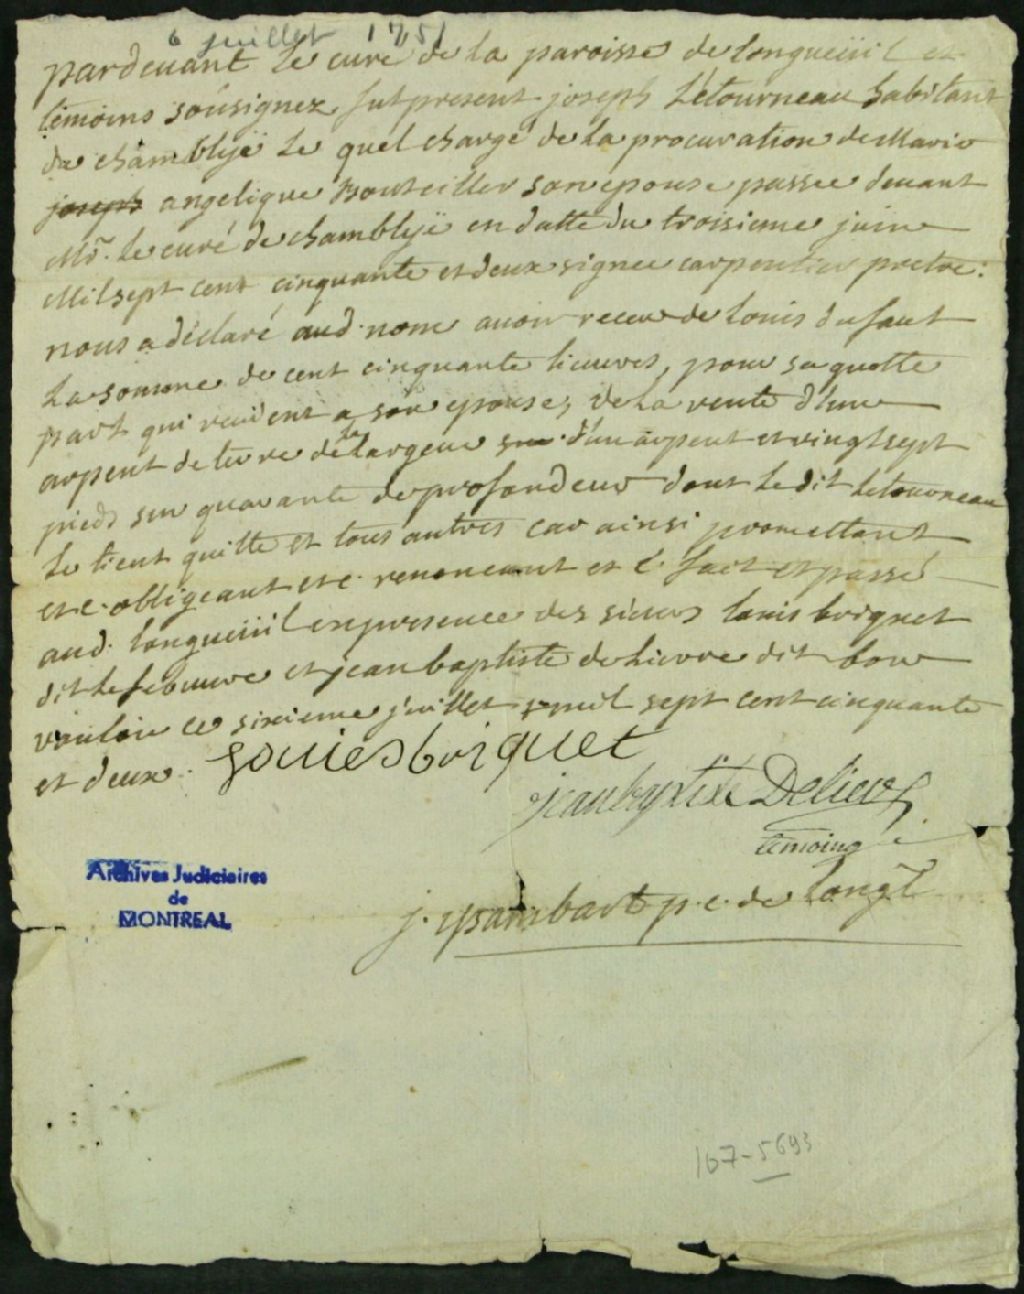 6 juillet 1751
pardevant Le curé de La paroisse de longueüil et
temoins soûsignez fut present joseph Létourneau habitant
de chamblÿe Le quel chargé de La procuration de Marie
joseph angelique Bouteiller son epouse passee devant
Mr. Le curé de chamblÿe en datte du troisieme juin
Mil sept cent cinquante et deux signee carpentier pretre :
nous a déclaré aud. nom avoir receu de louis dufaut
La somme de cent cinquante lieuvres, pour sa quotte
part qui revient a son epouse, de La vente d'une
arpent de terre de largeur sur d'un arpent et vingt sept
pieds sur quarante de profondeur dont Le dit Letourneau
Le tient quitte et tous autres car ainsi promettant
et c. obligeant et c. renoncant et c. fait et passé
aud. longueüil en presence des sieurs louis briquet
dit Lefebuvre et jean baptiste delievre dit bon
vouloir ce sixieme juillet mil sept cent cinquante
et deux.
Louies briquet
jean baptiste Delievr
temoing
j. ysambart p. c. de Longl
Archives Judiciaires
de
MONTREAL
167-5693